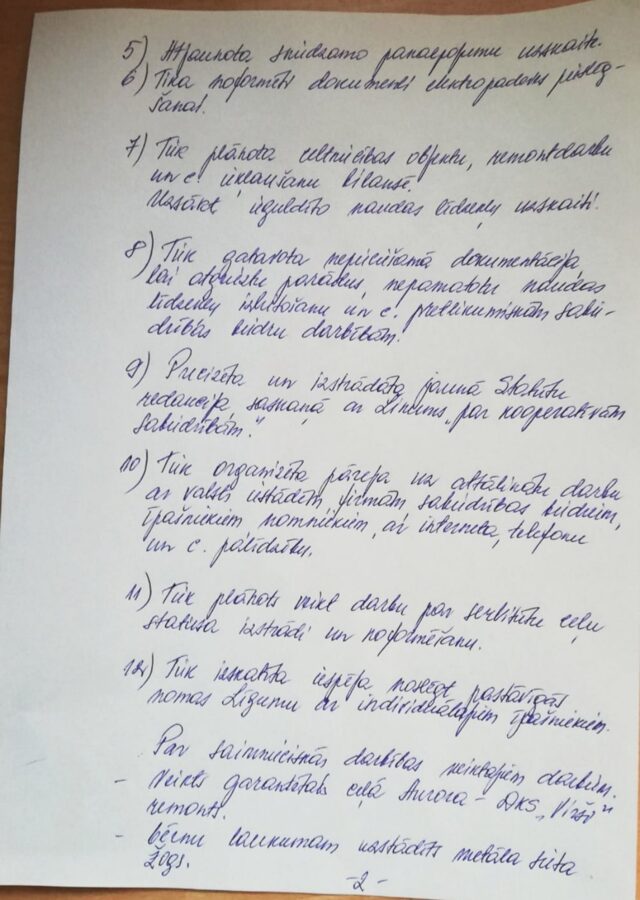 5) Atjaunota sniedzamo pakalpojumu uzskaite.
6) Tika noformēti dokumenti elektropadeves pieslēg-
šanai.
7) Tiek plānota celtniecības objektu, remontdarbu
un c. iekļaušanu bilancē.
Uzsākt ieguldīto naudas līdzekļu uzskaiti.
8) Tiek gatavota nepieciešamā dokumentācija,
lai atgūtu parādus, nepamatotu naudas
līdzekļu izlietošanu un c. pretlikumiskām sabie-
drības biedru darbībām.
9) Precizēta un izstrādāta jaunā Statūtu
redakcija, saskaņā ar Likums „par kooperatīvām
sabiedrībām".
10) Tiek organizēta pāreja uz attālinātu darbu
ar valsts iestādēm, firmām, sabiedrības biedriem,
īpašniekiem nomniekiem, ar interneta, telefonu
un c. palīdzību.
11) Tiek plānots veikt darbu par servitūtu ceļu
statusa izstrādi un noformēšanu.
12) Tiek izskatīta iespēja noslēgt pastāvīgās
nomas Līgumu ar individuālajiem īpašniekiem.
Par saimnieciskās darbības veiktajiem darbiem.
- Veikts garantētais ceļa Aurora - DKS „Virši"
remonts.
- Bērnu laukumam uzstādīts metāla sieta
žogs.
-2-